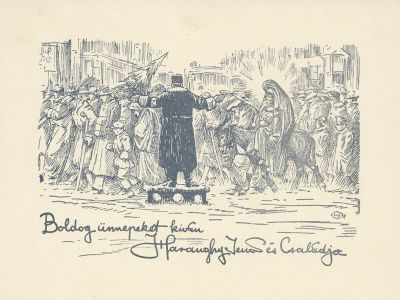 Boldog ünnepeket kíván
Haranghy Jenő és Családja